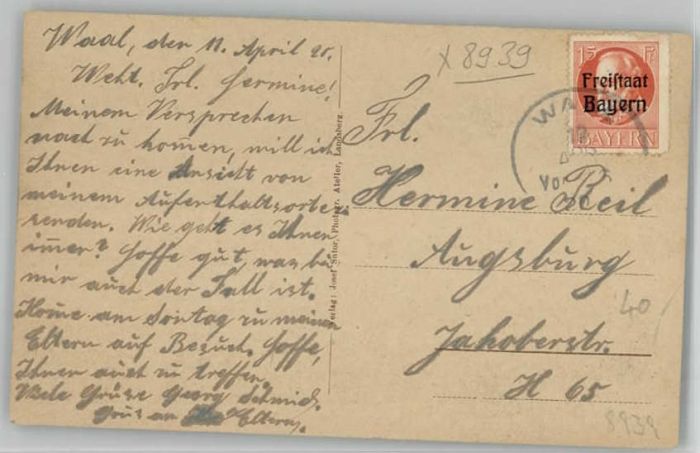 Waal, den 11. April 20.
Wehrt. Frl. Hermine!
Meinem Versprechen
nach zu kommen, will ich
Ihnen eine Ansicht von
meinem Aufenthaltsorte
senden. Wie geht es Ihnen
immer? Hoffe gut, was bei
mir auch der Fall ist.
Kome am Sontag zu meinen
Eltern auf Besuch. Hoffe,
Ihnen auch zu treffen.
Viele Grüse Georg Schmid.
Grus an Eltern.
Verlag: Josef Sutor, Photogr. Atelier, Landsberg.
X 8939
15 Pf
Freistaat
Bayern
BAYERN
WAAL
Frl.
Hermine Beil
Augsburg
Jakoberstr.
H 65
40
8939